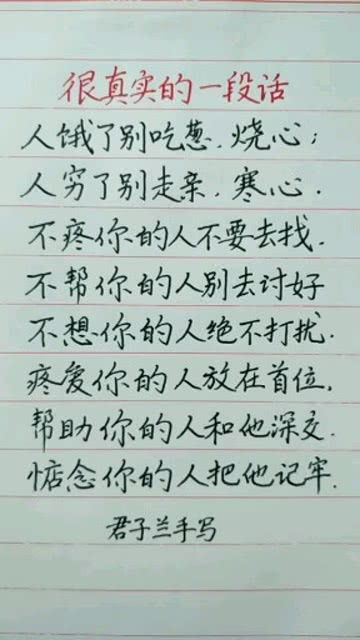 很真实的一段话
人饿了别吃葱.烧心;
人穷了别走亲.寒心.
不疼你的人不要去找.
不帮你的人别去讨好
不想你的人绝不打扰.
疼爱你的人放在首位.
帮助你的人和他深交.
惦念你的人把他记牢.
君子兰手写